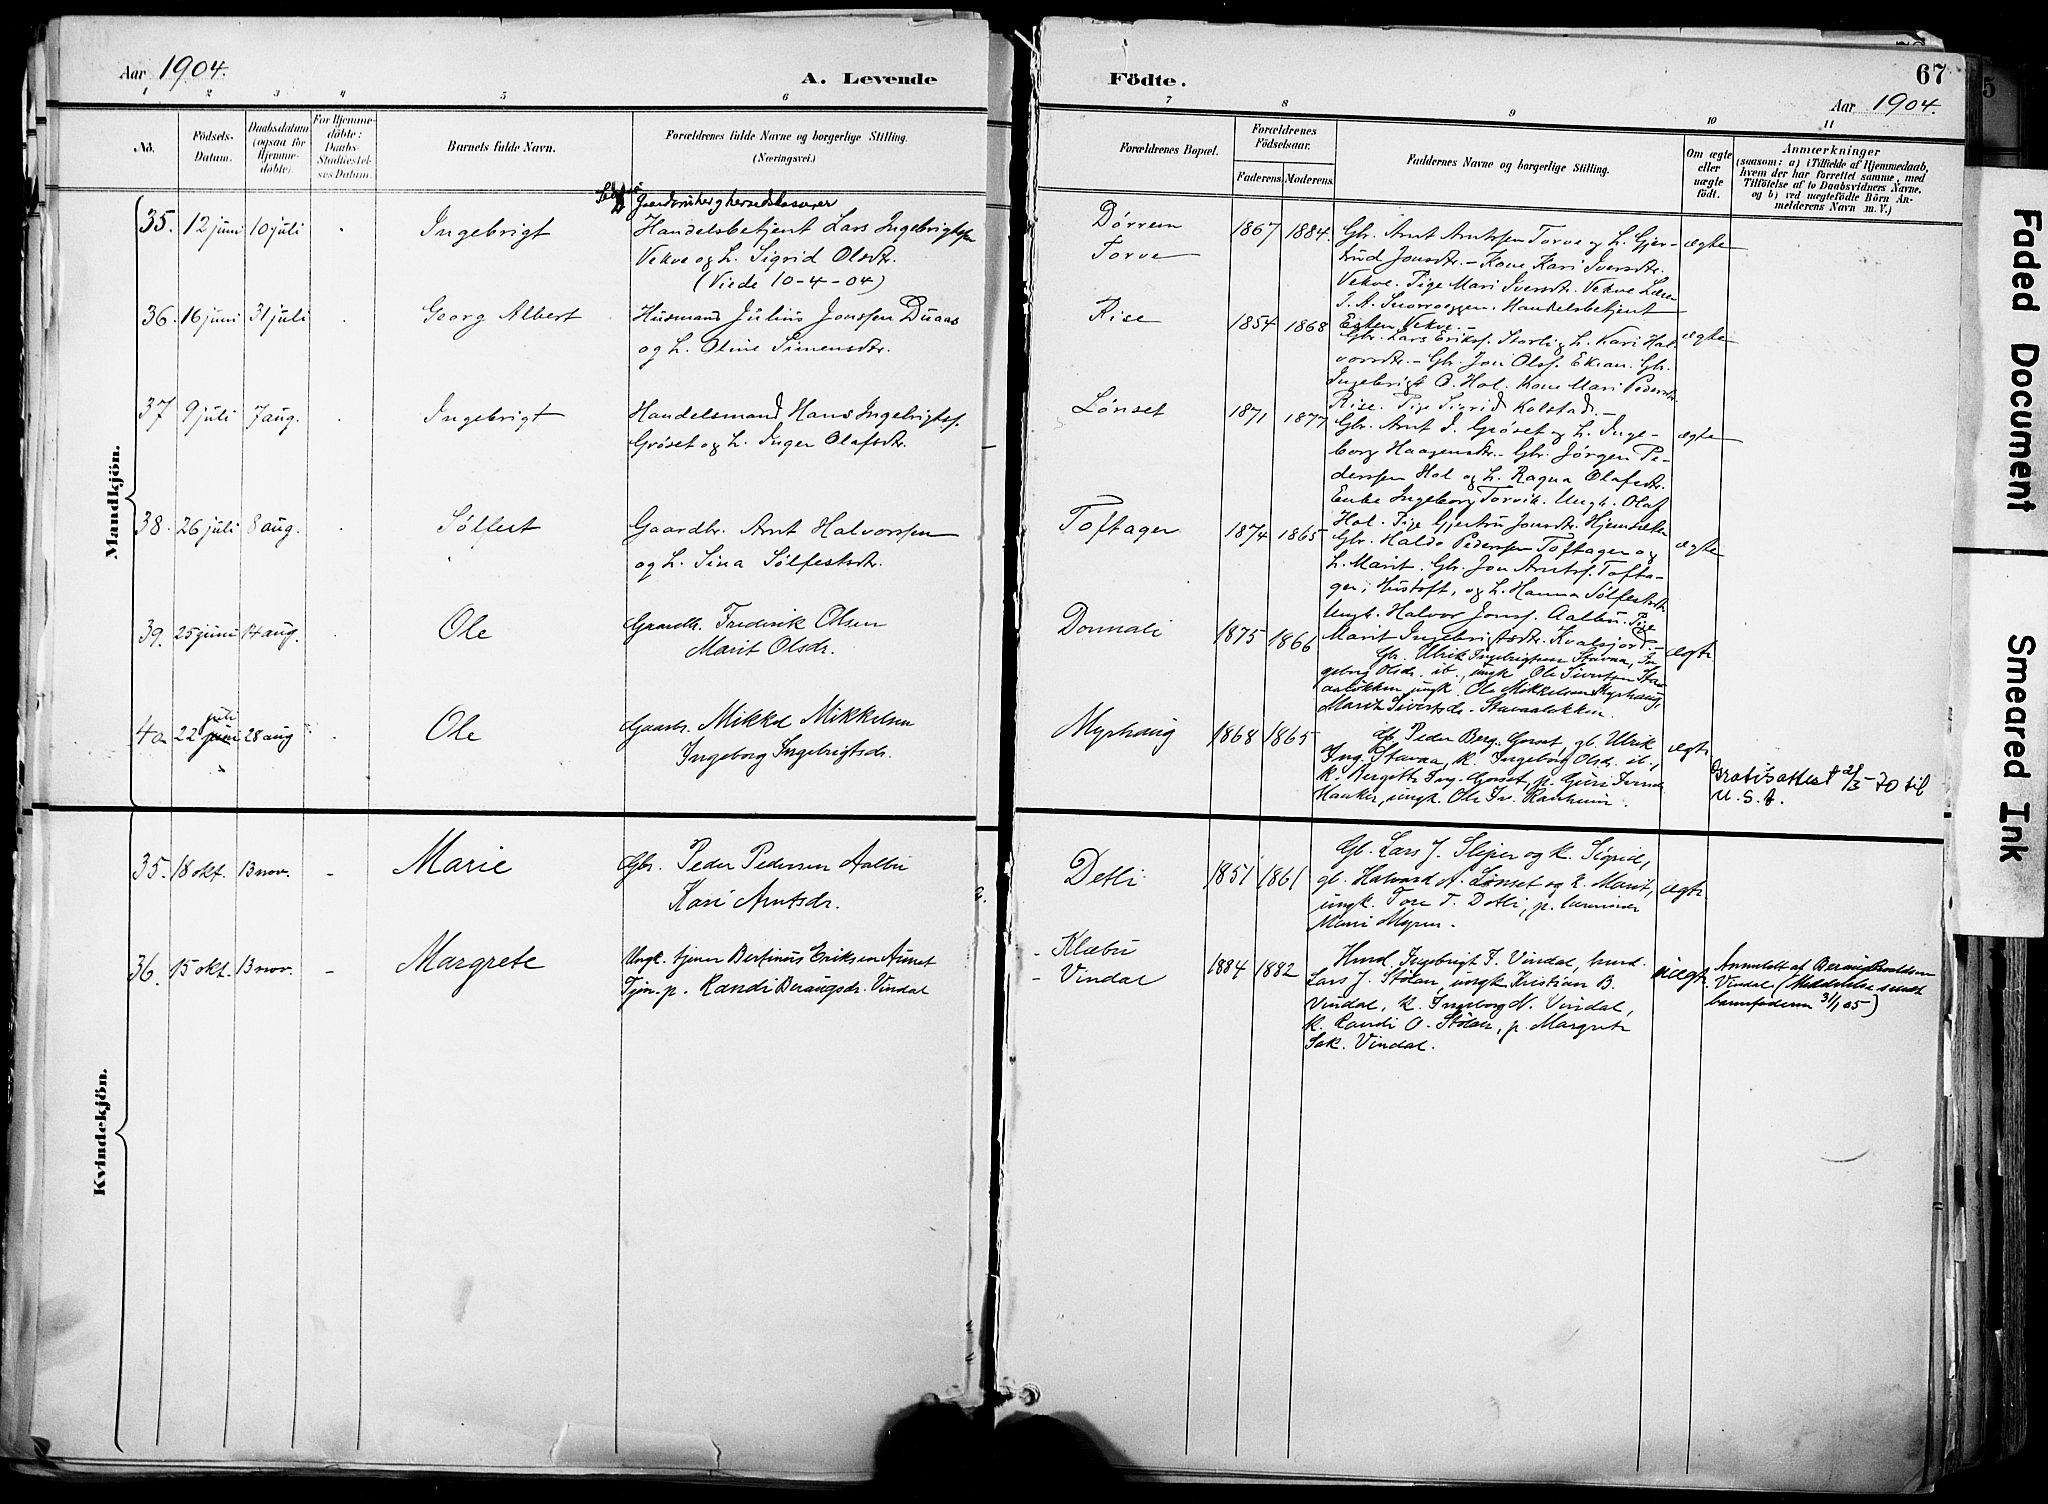 Aar 1904.
A. Levende
Födte.
67
Aar 1904.
1 2 3 4 5 6 7 8 9 10 11
No.
Födsels-
Datum.
Daabsdatum
(ogsaa for
Hjemme-
döbte).
For Hjemme-
döbte:
Daabs-
Stadfæstel-
ses Datum.
Barnets fulde Navn.
Forældrenes fulde Navne og borgerlige Stilling.
(Næringsvei.)
Forældrenes Bopæl.
Forældrenes
Födselsaar.
Faderens. Moderens.
Faddernes Navne og borgerlige Stilling.
Om ægte
eller
uægte
födt.
Anmærkninger
(saasom: a) i Tilfælde af Hjemmedaab,
hvem der har forrettet samme, med
Tilföielse af to Daabsvidners Navne,
og b) ved uægtefödte Börn An-
melderens Navn m. V.)
Mandkjön.
35. 12 juni 10 juli
Ingebrigt
Handelsbetjent Lars Ingebrigtsen
Vekve og h. Sigrid Olsdtr.
(Viede 10-4-04)
Dørrem
Torve
1867 1884.
Gbr. Arnt Arntssen Torve og h. Gjer-
trud Jonsdtr. - Kone Kari Iversdtr.
Vekve. Pige Mari Iversdtr. Vekve
I. A. Snoveggen. Handelsbetjent
Esten Vekve. -
ægte
36. 16 juni 31 juli
Georg Albert
Husmand Julius Jonssen Duaas
og h. Oline Simensdtr.
Rise
1854 1868
Gbr. Lars Eriks. Storli og h. Kari Hal-
vorsdtr. - Gbr. Jon Olss. Ekran. Gbr.
Ingebrigt O. Hol. Kone Mari Pedersdtr.
Rise. Pige Sigrid Kolstad. -
ægte
37 9 juli 7 aug.
Ingebrigt
Handelsmand Hans Ingebrigts.
Grøset og h. Inger Olafsdtr.
Lønset
1871 1877
Gbr. Arnt I. Grøset og h. Inge-
borg Haagensdtr. - Gbr. Jørgen Pe-
derssen Hol og h. Ragna Olafsdtr.
Enke Ingeborg Torvik. Ungk. Olaf
Hol. Pige Gjertru Jonsdtr.
ægte
38. 26 juli 8 aug.
Sølfest
Gaardbr. Arnt Halvorssen
og h. Sina Sølfestsdtr.
Toftager
1874 1865
Gbr. Haldo Pederssen Toftager og
h. Marit. Gbr. Jon Arnts. Tofta-
ger, Hustoft, og h. Hanna Sølfestsdtr.
Ungk. Halvor Jonss. Aalbu. Pige
Marit Ingebrigtsdtr. Kvalsjord. -
ægte
39. 25 juni 14 aug.
Ole
Gaardbr. Frederik Olsen
Marit Olsdr.
Donnali
1875 1866
Gbr. Ulrik Ingebrigtsen Stavaa, In-
geborg Olsdr. ib., ungk Ole Sivertsen Stav-
aaløkken, ungk. Ole Mikkelsen Myrhaug,
Marit Sivertsdr. Stavaaløkken.
ægte
40 22 juli juni 28 aug
Ole
Gaardbr. Mikkel Mikkelsen
Ingeborg Ingebrigtsdr.
Myrhaug
1868 1865
Gb. Peder Berg. Gorset, gb. Ulrik
Ing. Stavaa, k. Ingeborg Olsdr. ib.,
k. Bergette Ing. Gorset, p. Guri
Hauker, ungk. Ole Fr. Ranheim.
ægte
Gratisattest 21/3-70 til
U.S.A.
Kvindekjön.
35. 18 okt. 13 nov. -
Marie
Gbr. Peder Pedersen Aalbu
Kari Arntsdr.
Detli
1851 1861
Gb. Lars J. Sliper og k. Sigrid,
gb. Halvard A. Lønset og k. Marit,
ungk. Tore T. Detli, p.
Mari Myren.
ægte
36. 15 okt. 13 nov. -
Margrete
Ungk. tjener Bertinus Eriksen Aunet
Tjen. p. Randi Beraugsdr. Vindal
- Klæbu
- Vindal
1884 1882
Husd. Ingebrigt F. Vindal, husd.
Lars J. Stølan, ungk Kristian B.
Vindal, k. Ingeborg N. Vindal,
k. Randi O. Stølan, p. Margrete
Sak. Vindal.
uægte
Anmeldt af Beraug
Vindal (Meddelelse sendt
barnefaderen 31/1 05)
Faded Document
Smeared Ink